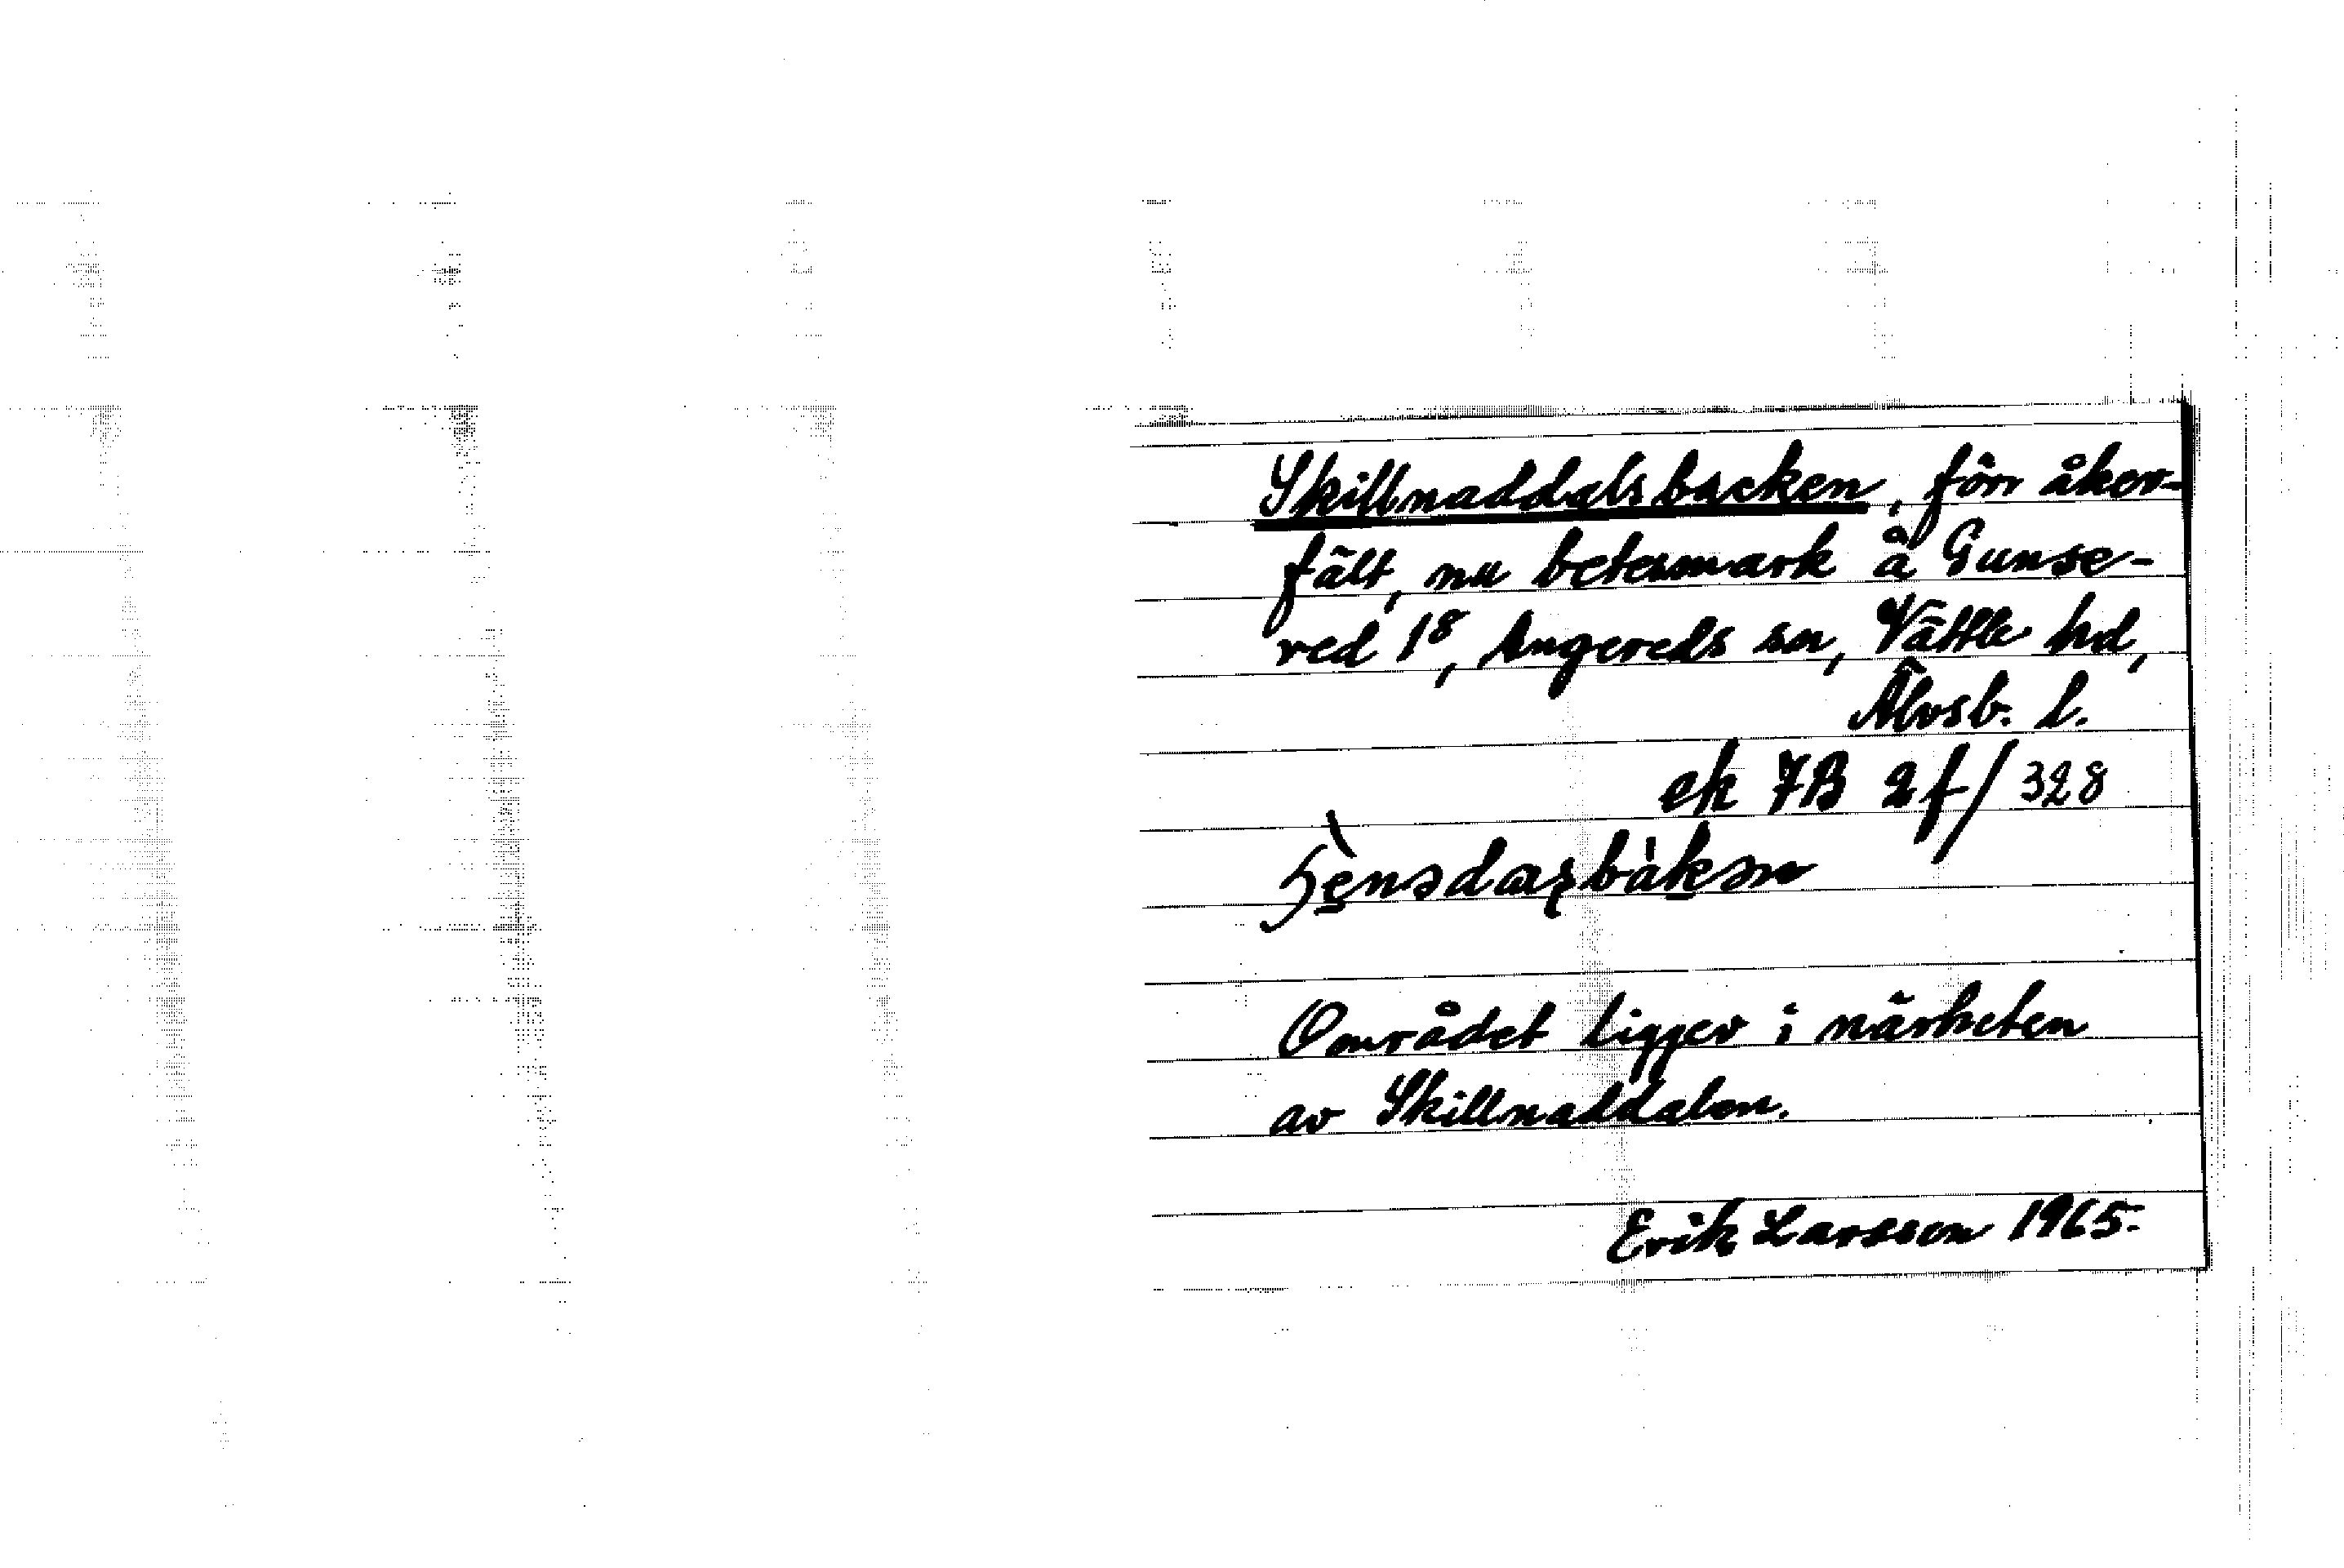 Skillnaddalsbacken, förr åker-
fält, nu betesmark å Gunse-
red 1⁸, Angereds sn, Vättle hd,
Älvsb. l.
ek 7B 2f/328
Området ligger i närheten
av Skillnaddalen.
Erik Larsson 1965.